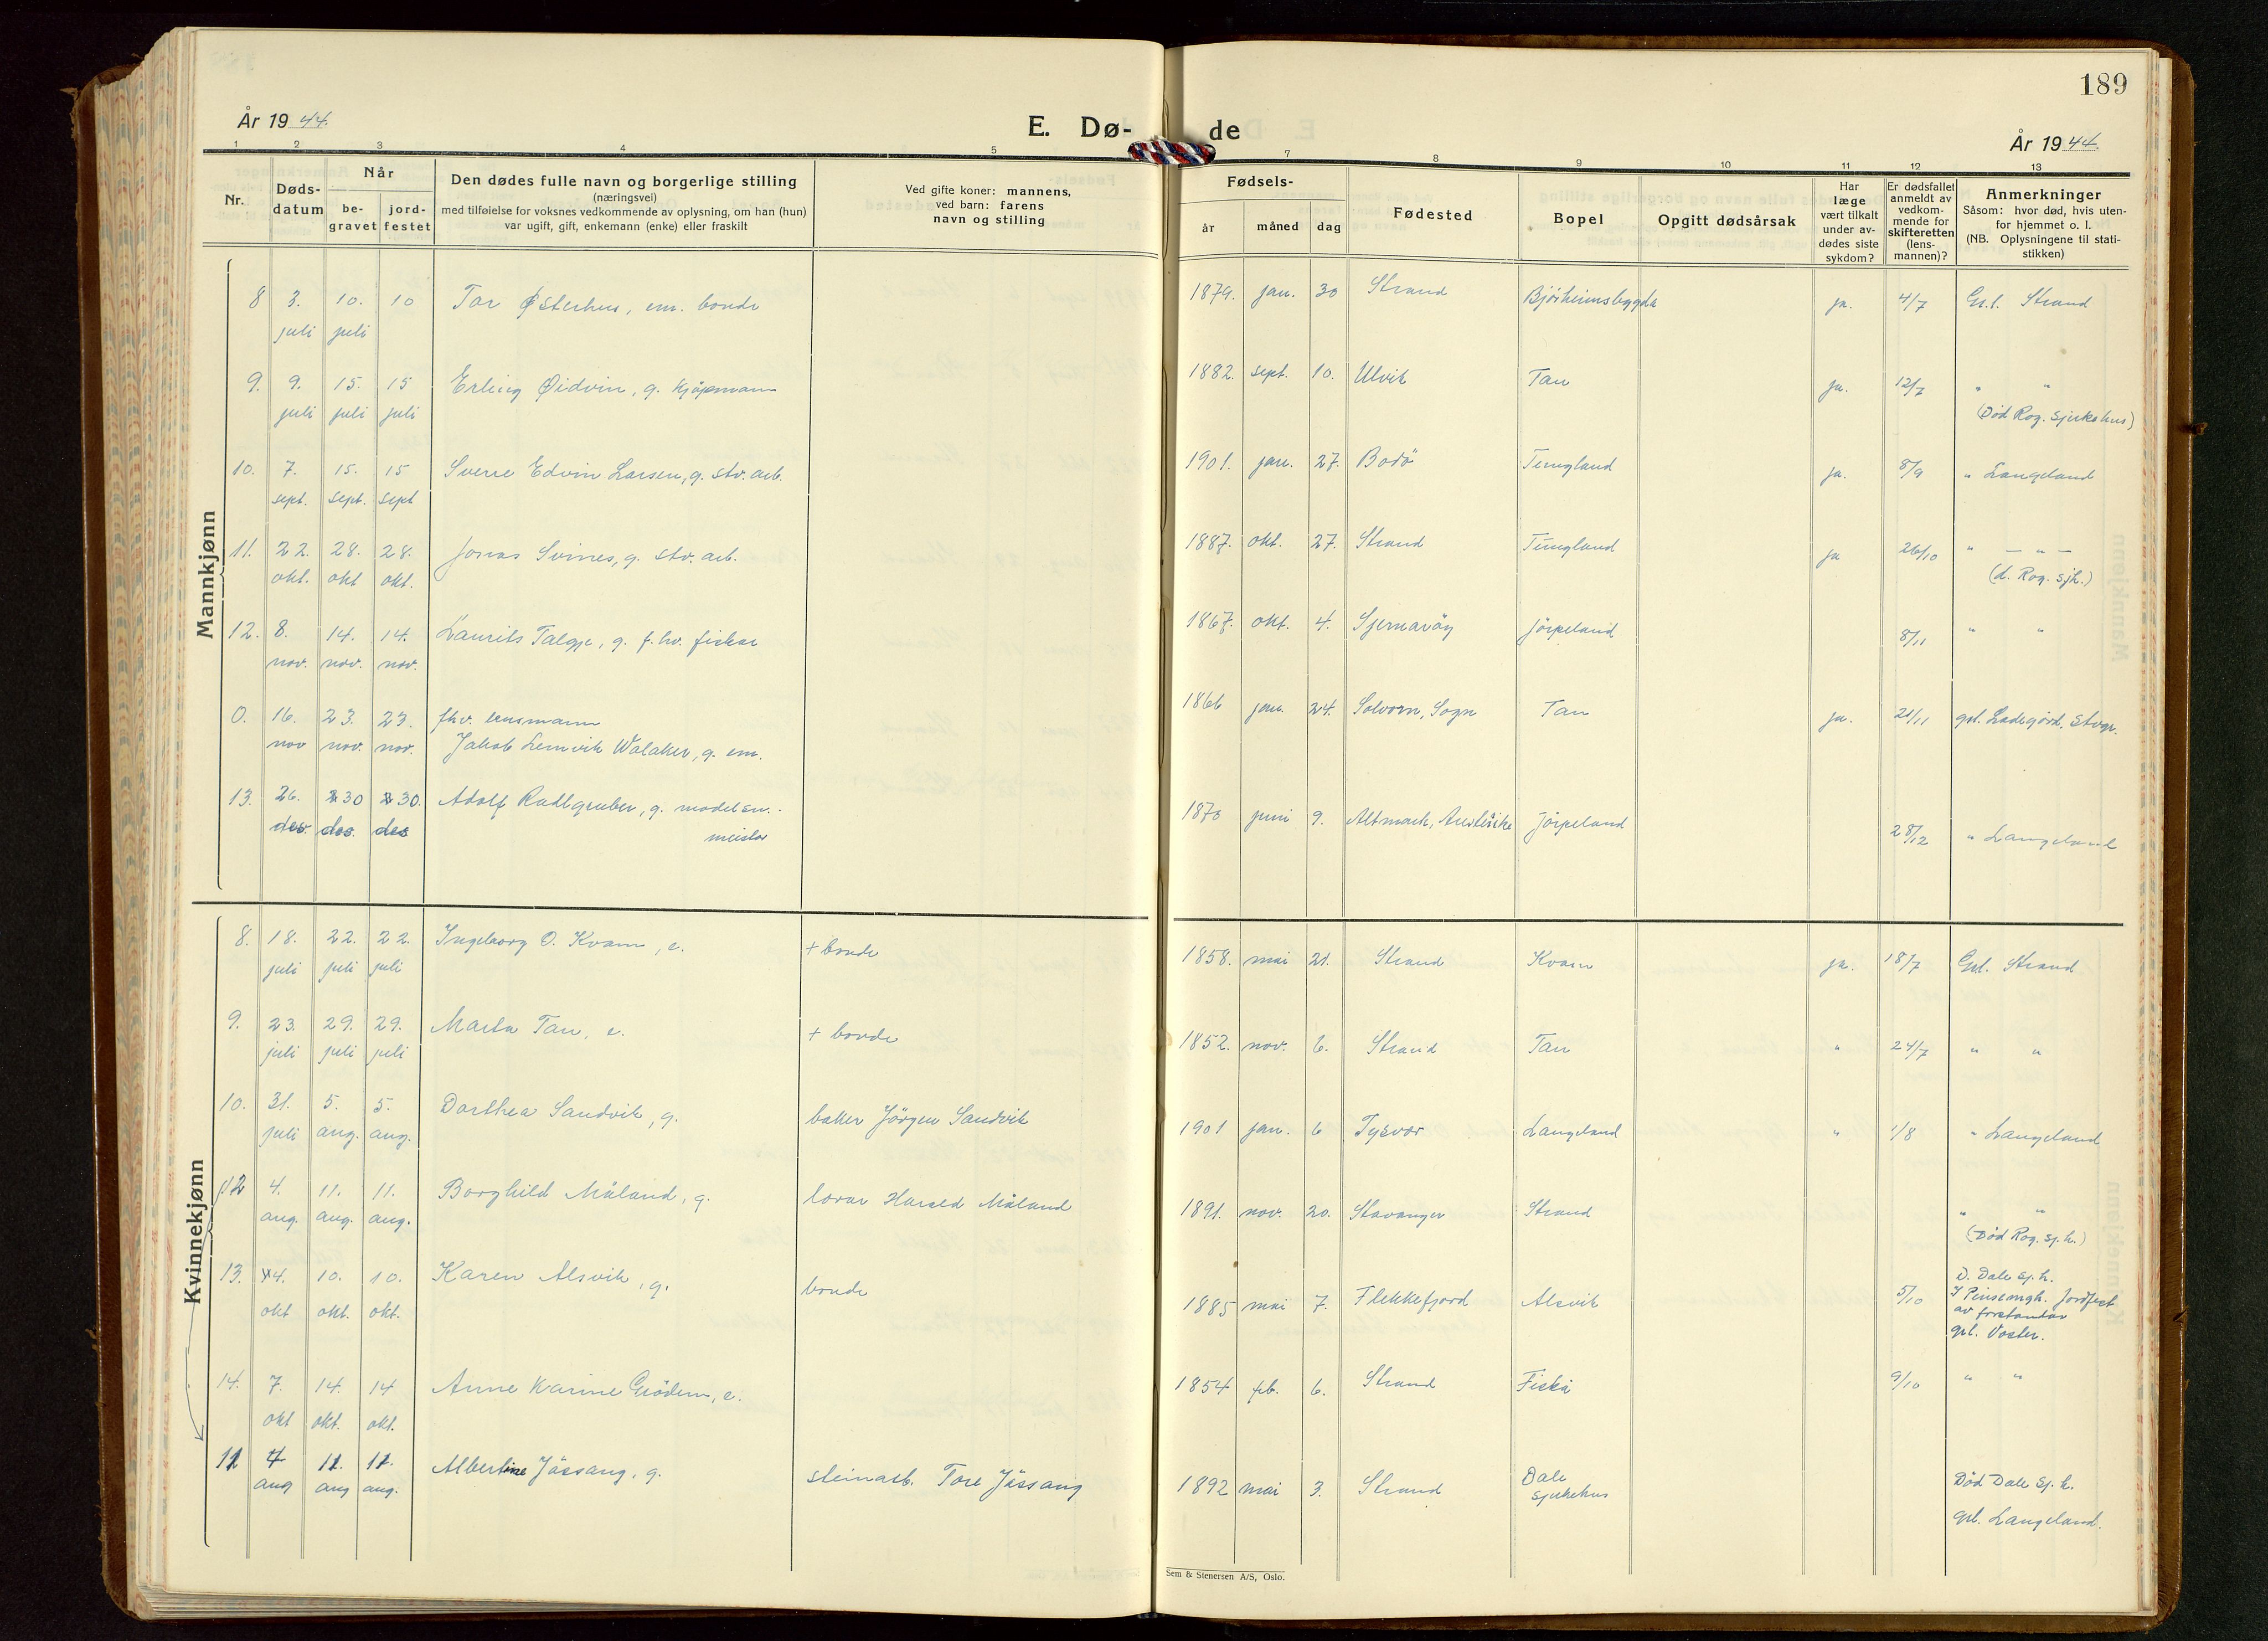 189
År 1944.
E. Dø-
de
År 1944.
1 2 3 4 5 7 8 9 10 11 12 13
Nr.
Døds-
datum
Når
be-
gravet
jord-
festet
Den dødes fulle navn og borgerlige stilling
(næringsvei)
med tilføielse for voksnes vedkommende av oplysning, om han (hun)
var ugift, gift, enkemann (enke) eller fraskilt
Ved gifte koner: mannens,
ved barn: farens
navn og stilling
Fødsels-
år måned dag
Fødested
Bopel
Opgitt dødsårsak
Har
læge
vært tilkalt
under av-
dødes siste
sykdom?
Er dødsfallet
anmeldt av
vedkom-
mende for
skifteretten
(lens-
mannen)?
Anmerkninger
Såsom: hvor død, hvis uten-
for hjemmet o. l.
(NB. Oplysningene til stati-
stikken)
Mannkjønn
8 3. 10. 10 Tor Østerhus, em. bonde 1874. jan. 30 Strand Bjørheimsbygda ja. 4/7 Gr.l. Strand
juli juli
9. 9. 15. 15 Erling Øidvin, g. kjøpmann 1882. sept. 10. Ulvik Tau ja. 12/7 " "
juli juli juli (Död Rog. sjukehus)
10. 7. 15. 15 Sverre Edvin Larsen, g. stv. arb. 1901. jan. 27. Bodö Tungland ja. 8/9 " Langeland
sept. sept. sept
11. 22. 28. 28. Jonas Svines, g. stv. arb. 1887. okt. 27. Strand Tungland ja 26/10 " — " —
okt. okt okt. (d. Rog. sjh.)
12. 8. 14. 14. Laurits Talgje, g. f.hv. fiskar 1867. okt. 4. Sjernaröy Jörpeland 8/11 " "
nov. nov. nov.
0. 16. 23. 23. fhv. lensmann 1866 jan. 24. Solvorn, Sogn Tau ja. 21/11 grl. Ladegård. Stvgr.
nov nov. nov. Jakob Lemvik Walaker, g. em.
13. 26. 30 30. Adolf Radlgruber, g. modelsn.- 1878 juni 9. Altmark, Austerike Jörpeland 28/12 " Langeland
des. des. des meister
Kvinnekjønn
8. 18. 22. 22. Ingeborg O. Kvam, e. + bonde 1858. mai 21. Strand Kvam ja. 18/7 Grl. Strand
juli juli juli
9. 23. 29. 29. Marta Tau, e. + bonde 1852. nov. 6. Strand Tau " 24/7 " "
juli juli juli
10. 31. 5. 5. Dorthea Sandvik, g. baker Jörgen Sandvik 1901 jan. 6 Tysvær Langeland " 1/8 " Langeland
juli aug. aug.
12 4. 11. 11. Borghild Måland, g. lærar Harald Måland 1891. nov. 20. Stavanger Strand " "
aug. aug. aug. (Död Rog. sj. h.)
13. 4. 10. 10. Karen Alsvik, g. bonde 1885 mai 7. Flekkefjord Alsvik 5/10 D. Dale sj. h.
okt okt. okt. I Pinsemgh. Jordfest
av forstandar
grl. Voster.
14. 7. 14. 14 Anne Karine Grödem, e. 1854 feb. 6. Strand Fiskå 9/10 " "
okt okt. okt.
11 4 11. 11. Albertine Jössang, g. steinarb. Tore Jössang 1892 mai 3. Strand Dale Död Dale Sj. h.
aug aug aug. Sjukehus
grl. Langeland.
Sem & Stenersen A/S, Oslo.